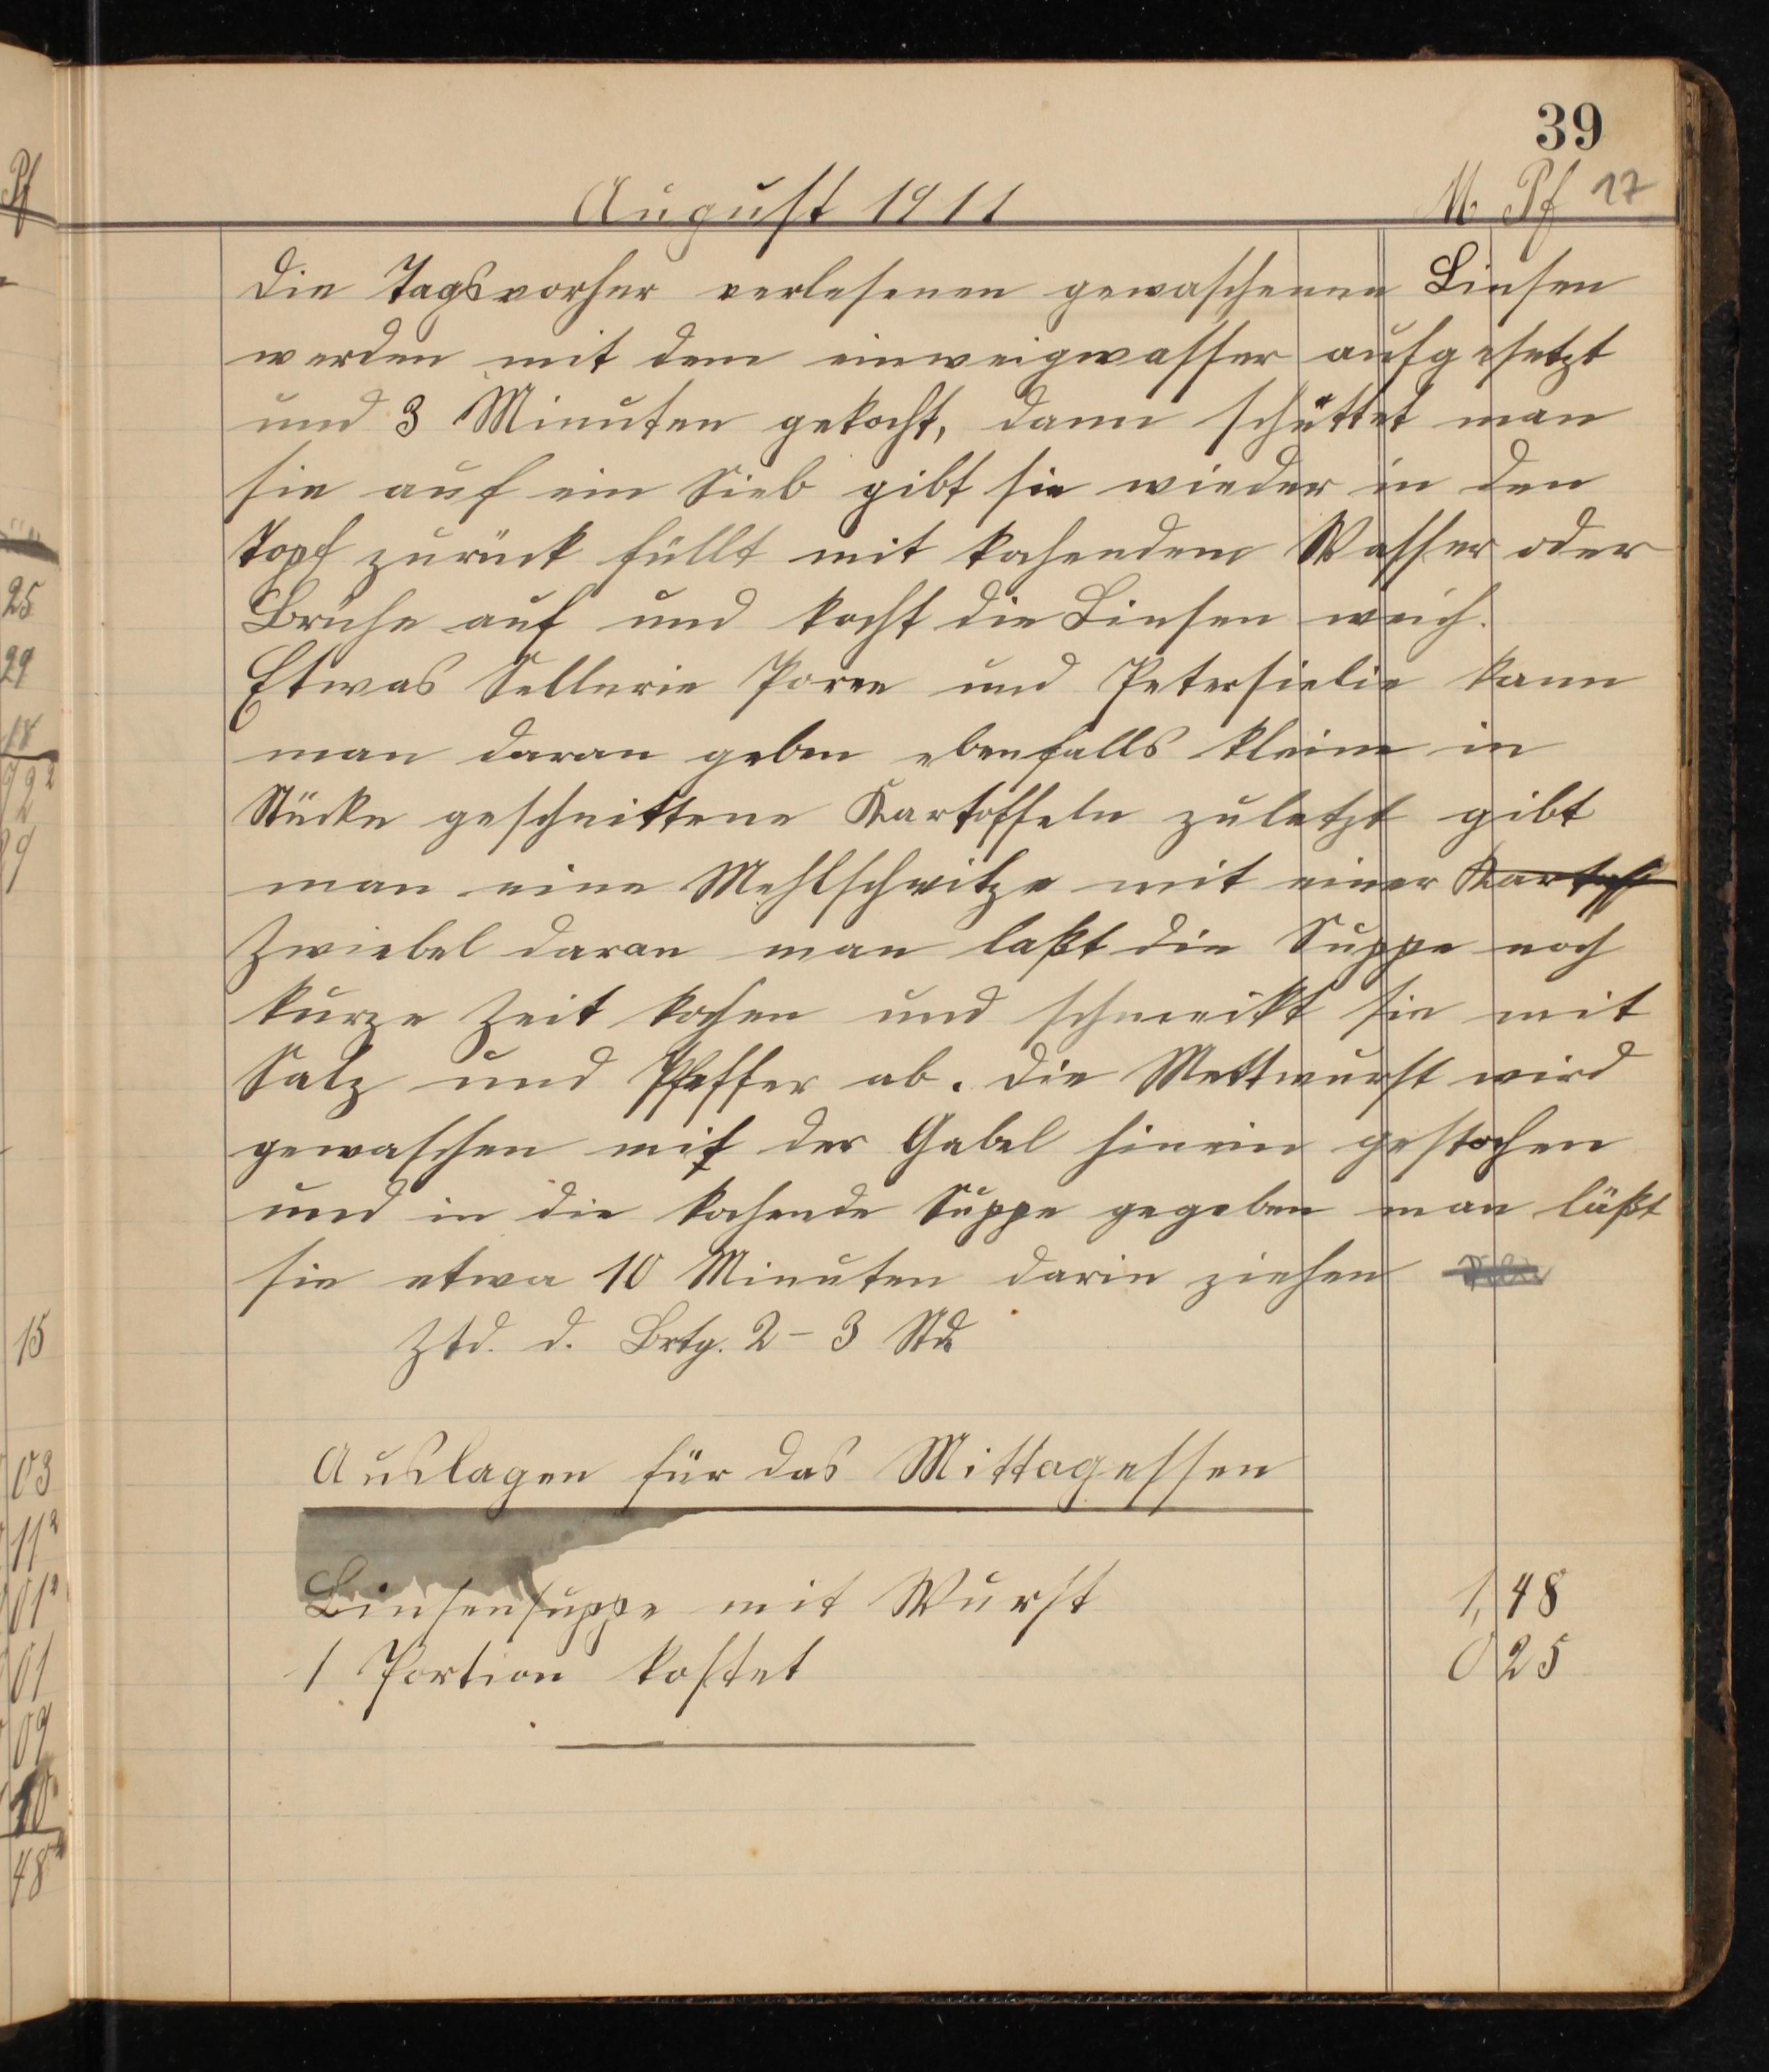 39
August 1911 M. Pf 17
Die Tagsvorher verlesenen gewaschenen Linsen
werden mit dem einweigwasser aufgesetzt
und 3 Minuten gekocht, dann schüttet man
sie auf ein Sieb gibt sie wieder in den
Topf zurück füllt mit kochendem Wasser oder
Brühe auf und kocht die Linsen weich.
Etwas Sellerie Poree und Petersielie kann
man daran geben ebenfalls kleine in
Stücke geschnittene Kartoffeln zuletzt gibt
man eine Mehlschwitze mit einer Kartoff
Zwiebel daran man laßt die Suppe noch
kurze Zeit kochen und schmeckt sie mit
Salz und Pfeffer ab. Die Mettwurst wird
gewaschen mit der Gabel hinein gestochen
und in die kochende Suppe gegeben man läßt
sie etwa 10 Minuten darin ziehen
Ztd. d. Brtg. 2-3 Std
Auslagen für das Mittagessen
Linsensuppe mit Wurst 1,48
1 Portion kostet 0 25